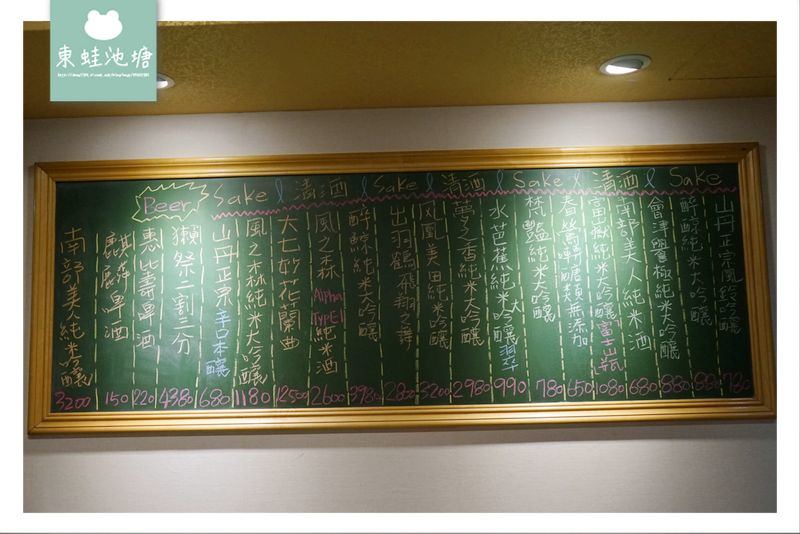 東蛙池塘
Beer
Sake & 清酒 & Sake & 清酒 & Sake & 清酒 & Sake
山丹正宗 吟釀 780
醉涼純米大吟釀 880
會津譽極純米大吟釀 880
南部美人純米酒 680
富嶽純米大吟釀富士山瓶 1080
春鶯囀 無添加 650
梵艷純米大吟釀 780
水芭蕉純米大吟釀翠 990
夢之香純米大吟釀 2980
鳳凰美田純米吟釀 3200
出羽鶴飛翔之舞 2800
醉鯨純米大吟釀 3980
風之森 Alpha TYPE1 純米酒 2600
大七妙花蘭曲 12500
風之森純米大吟釀 1180
山丹正宗辛口本釀 680
獺祭二割三分 4380
惠比壽啤酒 220
麒麟啤酒 150
南部美人純米吟釀 3200